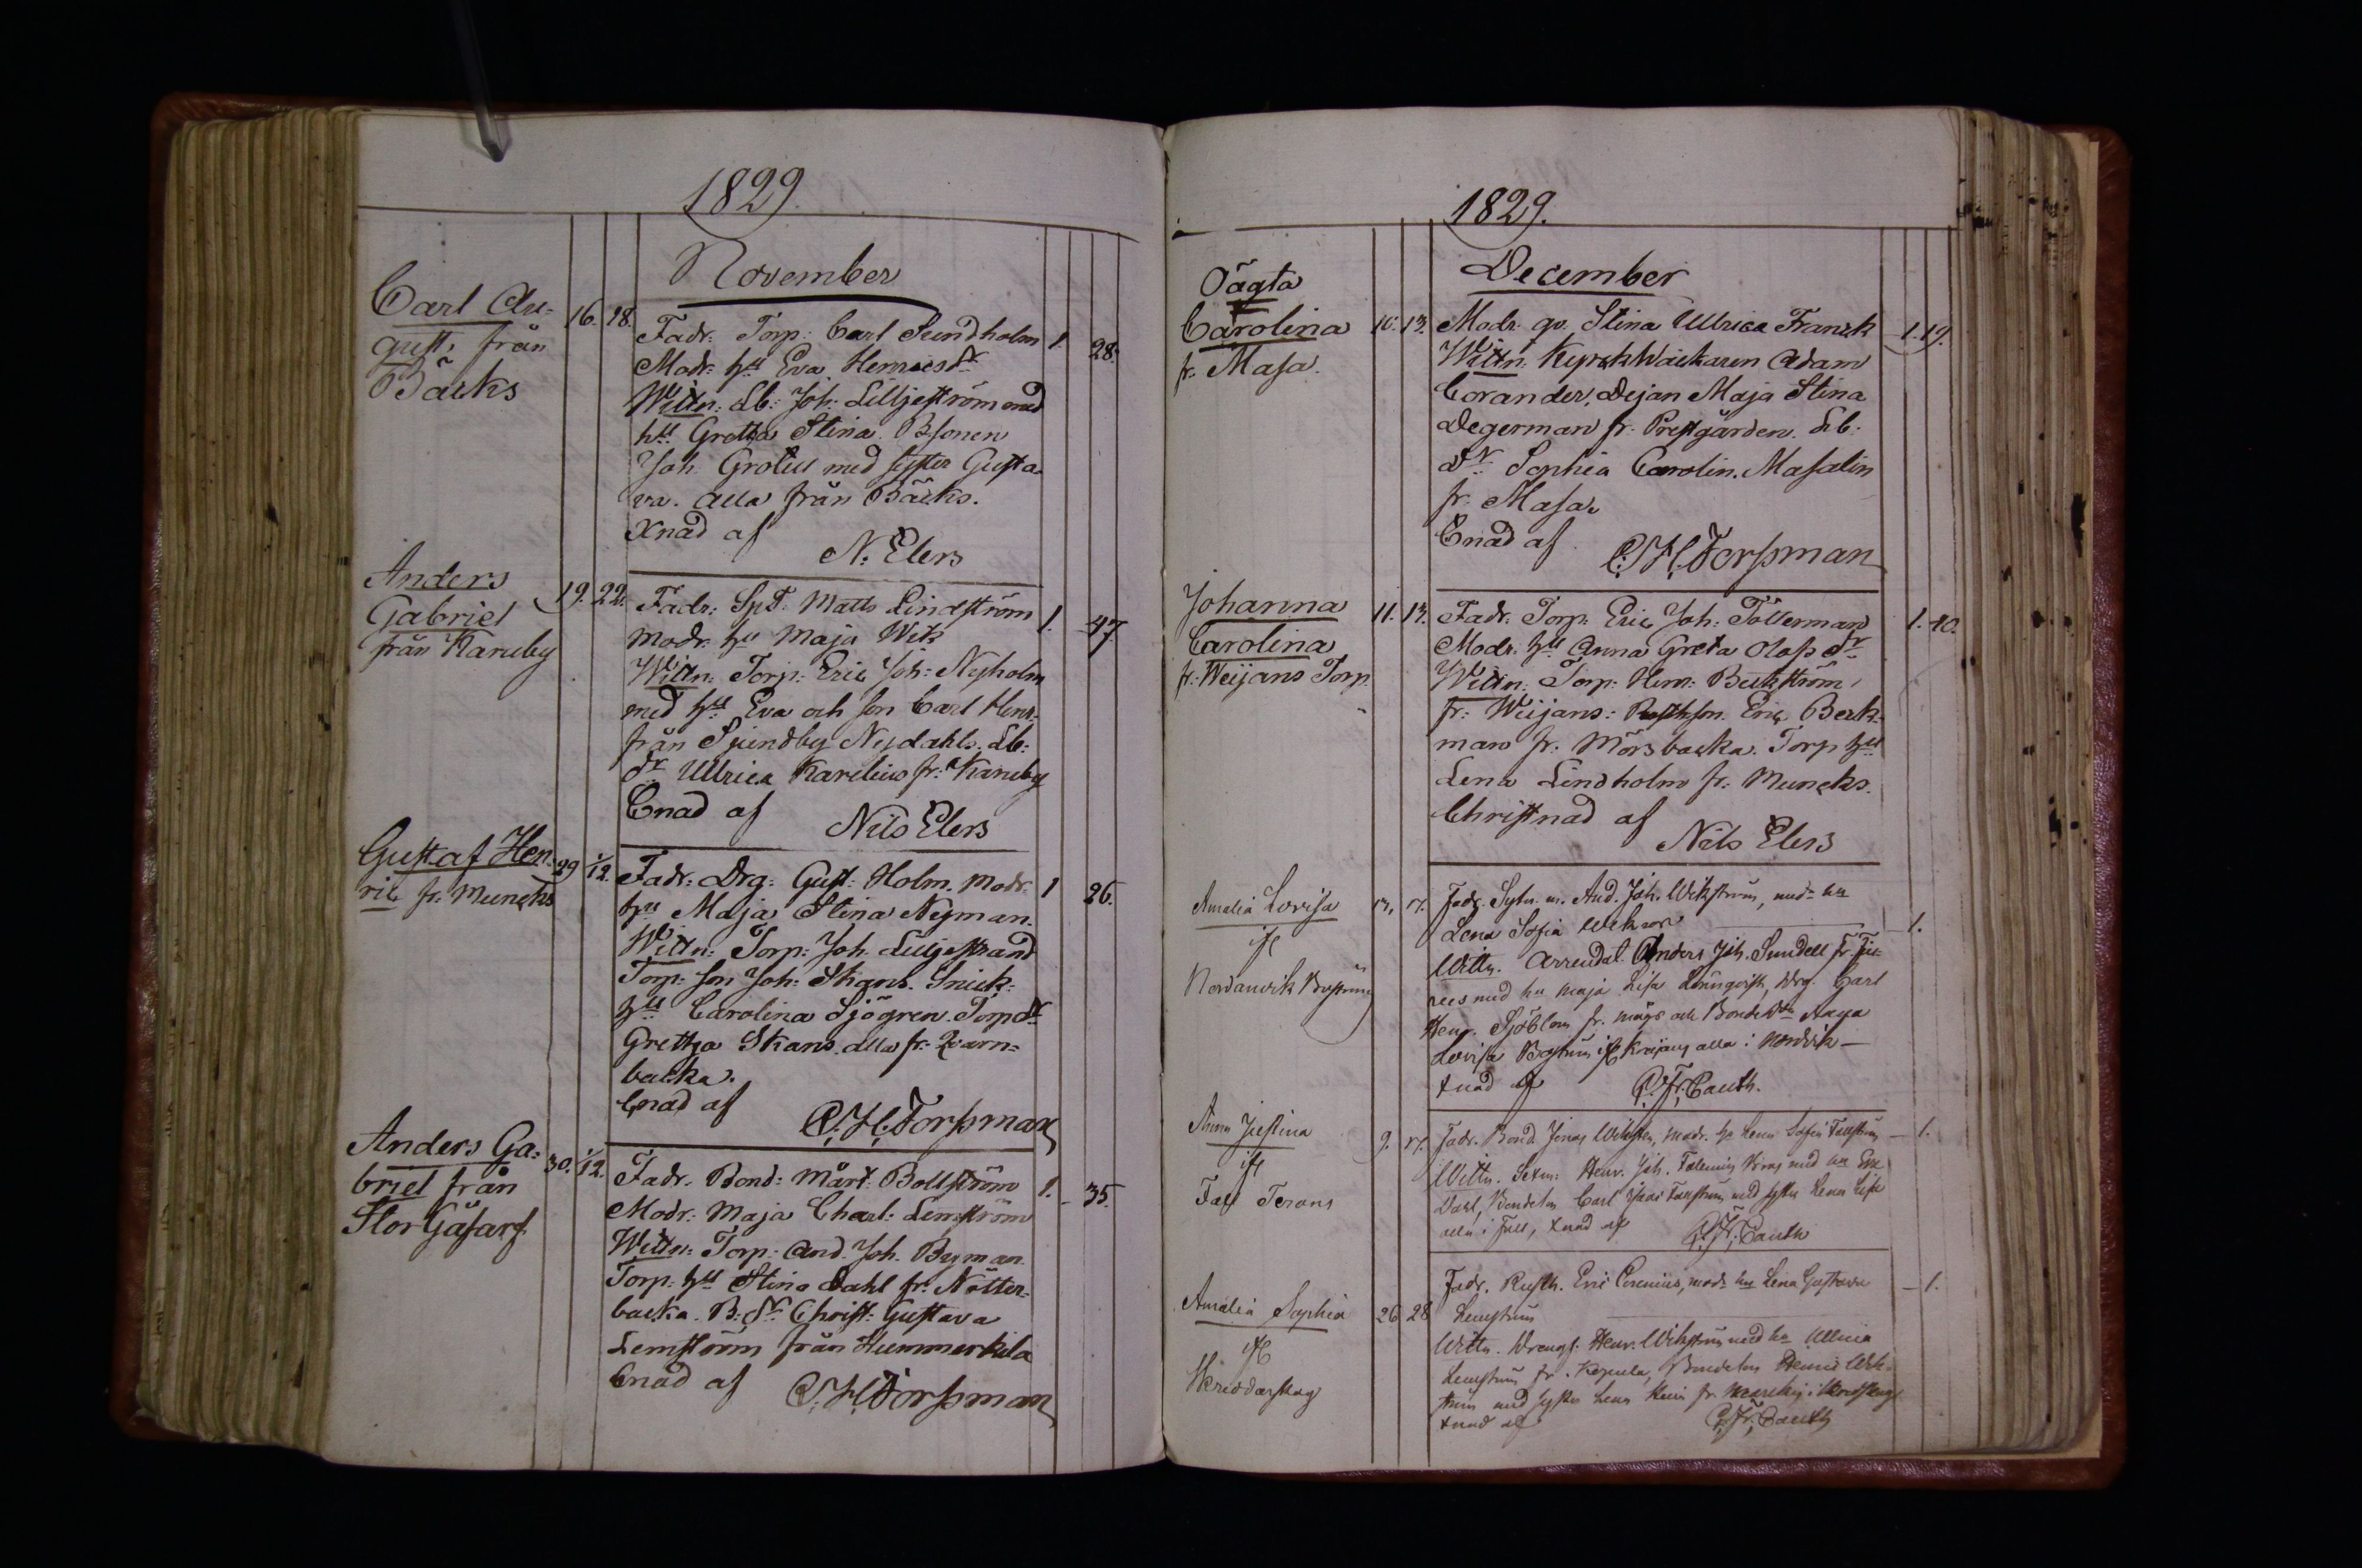 1829.
November
Carl Au-
gust, från
Bäcks
16. 18.
Fadr: Torp: Carl Sundholm
Modr: hu Eva Henricsdr
Wittn: Lb: Joh: Lilljeström med
hu Gretha Stina. Bsonen
Joh. Grotell med syster Gusta-
va. alla från Bäcks.
Xnad af N. Elers
1. 28.
Anders
Gabriel
från Karuby
19. 22.
Fadr: SpT: Matts Lindström
modr. hu Maja Wik
Wittn: Torp: Eric Joh: Nyholm
med hu Eva och son Carl Henr.
från Sjundby Nydahls. Lb:
dr Ullrica Karelius fr: Karuby
Cnad af Nils Elers
1. 47.
Gustaf Hen-
ric fr. Muncks
29 1/12.
Fadr: Drg: Gust: Holm. modr:
hu Maja Stina Nyman.
Wittn: Torp: Joh. Liljestrand
Torp: son Joh: Skans. Snick:
hu Carolina Sjögren. Torp dr
Gretha Skans alla fr: Qvarn-
backa.
Cnad af C. H. Forssman
1 26.
Anders Ga-
briel från
Stor Gäsarf
30. 1/12.
Fadr. Bond: Mårt: Bollström
Modr: Maja Charl: Lemström
Wittn: Torp: And. Joh. Byman.
Torp: hu Stina Dahl fr: Nötter-
backa. B: dr Christ: Gustava
Lemström från Hummerkila
Cnad af C. H. Forssman
1. 35.
1829.
December
Oägta
Carolina
fr. Masa.
10. 13.
Modr. qv. Stina Ullrica Franck
Wittn: Kyrckwäcktaren Adam
Corander, Dejan Maja Stina
Degerman fr: Prestgården. Lb:
dr Sophia Carolin. Masalin
fr. Masa.
Cnad af C. H. Forssman
1. 19.
Johanna
Carolina
fr. Weijans Torp
11. 13.
Fadr: Torp: Eric Joh: Tötterman
Modr: hu Anna Greta Olofs dr
Wittn: Torp: Herm: Beckström
fr: Weijans: Rusth. son Eric Berk-
man fr. Mörsbacka. Torp hu
Lena Lindholm fr. Muncks.
Christnad af
Nils Elers
1. 40.
Amalia Lovisa
if
13. 17.
Fadr. And. Joh. Wikström, mod: hu
Lena Sofia
Wittn. Arrendat. Anders Joh. Sundell fr.
med hu Maja Lisa Drg. Carl
Henr. Sjöblom fr. och Bonde Anna
Lovisa alla i
xnad af C. Fr. Cauth.
1.
Anna Justina
if
Fall
9. 17.
Fadr. Bond. Jonas Wikster, modr. hu Lena Sofia
Wittn. Sexm: Henr. Joh. med hu Eva
Dahl, Bondeson Carl med syster Lena Lisa
alla i Fall, xnad af C. Fr. Cauth
1.
Amalia Sophia
if
26 28
Fadr. Rusth. Eric mod: hu Lena Gustava
Lemström
Wittn. Henr. Wikström med hu Ullrica
Lemström fr. Kopula, Bondeson Henric Wik-
ström med syster Lena fr.
xnad af C. Fr. Cauth
1.